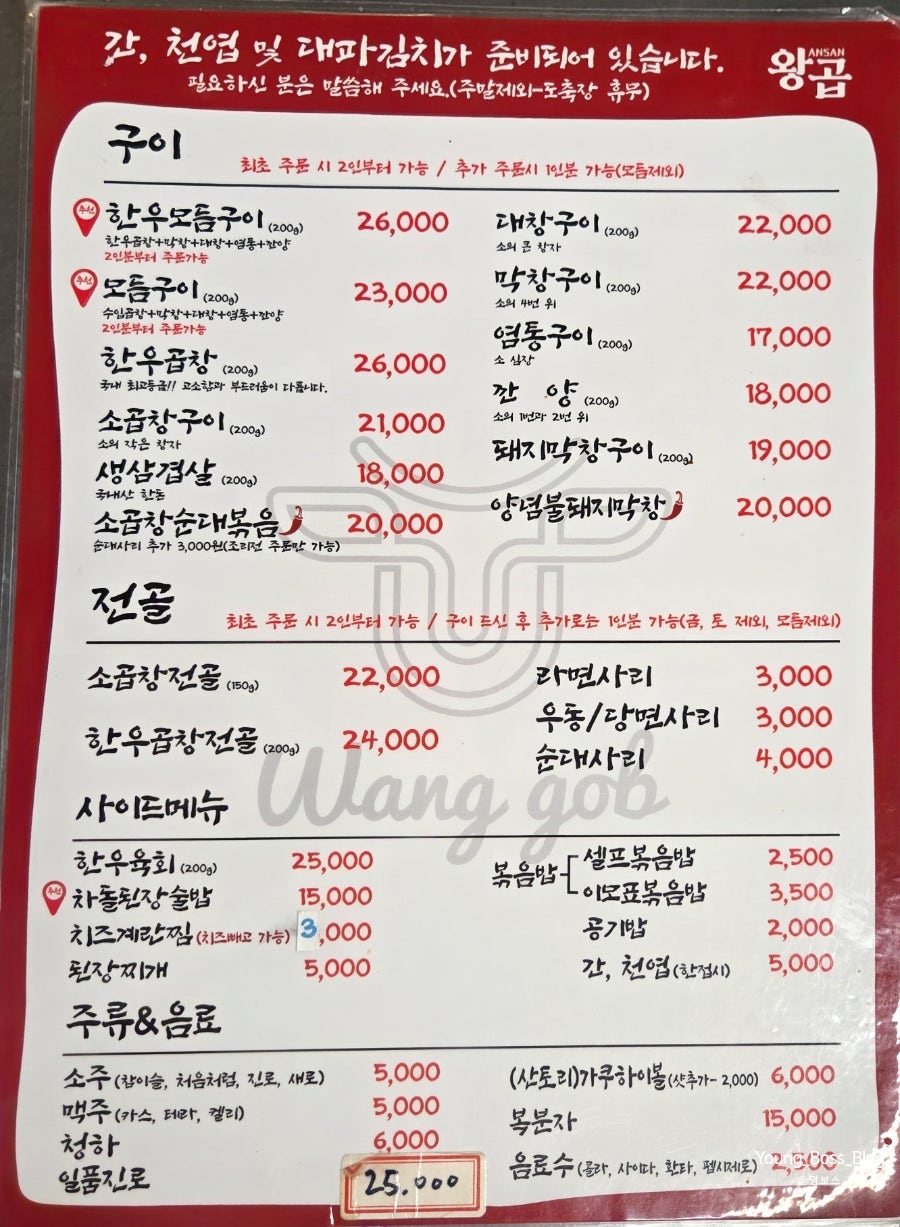 간, 천엽 및 대파김치가 준비되어 있습니다.
필요하신 분은 말씀해 주세요.(주말제외-도축장 휴무)
ANSAN
왕곱
구이
최초 주문 시 2인부터 가능 / 추가 주문시 1인분 가능(모듬제외)
추천 한우모듬구이 (200g) 26,000
한우곱창+막창+대창+염통+깐양
2인분부터 주문가능
추천 모듬구이 (200g) 23,000
수입곱창+막창+대창+염통+깐양
2인분부터 주문가능
한우곱창 (200g) 26,000
국내 최고등급!! 고소함과 부드러움이 다릅니다.
소곱창구이 (200g) 21,000
소의 작은 창자
생삼겹살 (200g) 18,000
국내산 한돈
소곱창순대볶음 20,000
순대사리 추가 3,000원(조리전 주문만 가능)
대창구이 (200g) 22,000
소의 큰 창자
막창구이 (200g) 22,000
소의 4번 위
염통구이 (200g) 17,000
소 심장
깐 양 (200g) 18,000
소의 1번과 2번 위
돼지막창구이 (200g) 19,000
양념불돼지막창 20,000
전골
최초 주문 시 2인부터 가능 / 구이 드신 후 추가로는 1인분 가능(금, 토 제외, 모듬제외)
소곱창전골 (150g) 22,000
한우곱창전골 (200g) 24,000
라면사리 3,000
우동/당면사리 3,000
순대사리 4,000
Wang gob
사이드메뉴
한우육회 (200g) 25,000
추천 차돌된장술밥 15,000
치즈계란찜 (치즈빼고 가능) 3,000
된장찌개 5,000
볶음밥
셀프볶음밥 2,500
이모표볶음밥 3,500
공기밥 2,000
간, 천엽 (한접시) 5,000
주류&음료
소주 (참이슬, 처음처럼, 진로, 새로) 5,000
맥주 (카스, 테라, 켈리) 5,000
청하 6,000
일품진로 25.000
(산토리)가쿠하이볼 (샷추가- 2,000) 6,000
복분자 15,000
음료수 (콜라, 사이다, 환타, 펩시제로)
Young_Boss_Blog